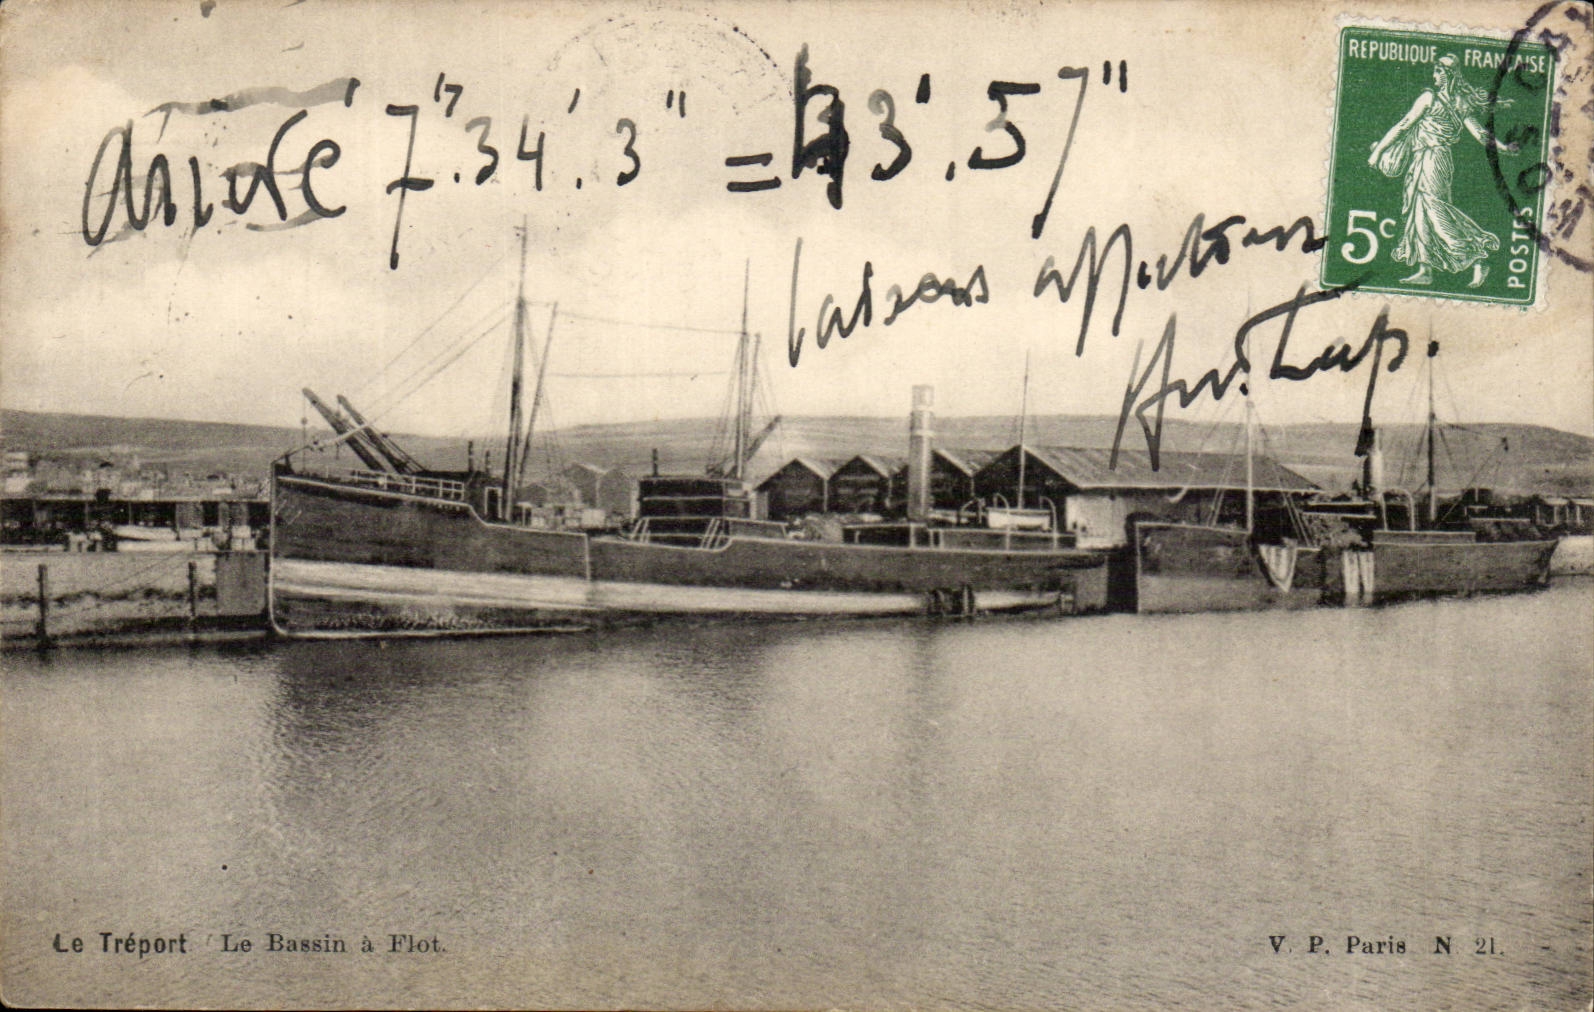 REPUBLIQUE FRANÇAISE
5c
POSTES
arrivée 7h.34'.3" = 3'.57"
baisers affectueux
Le Tréport Le Bassin à Flot.
V. P. Paris N 21.